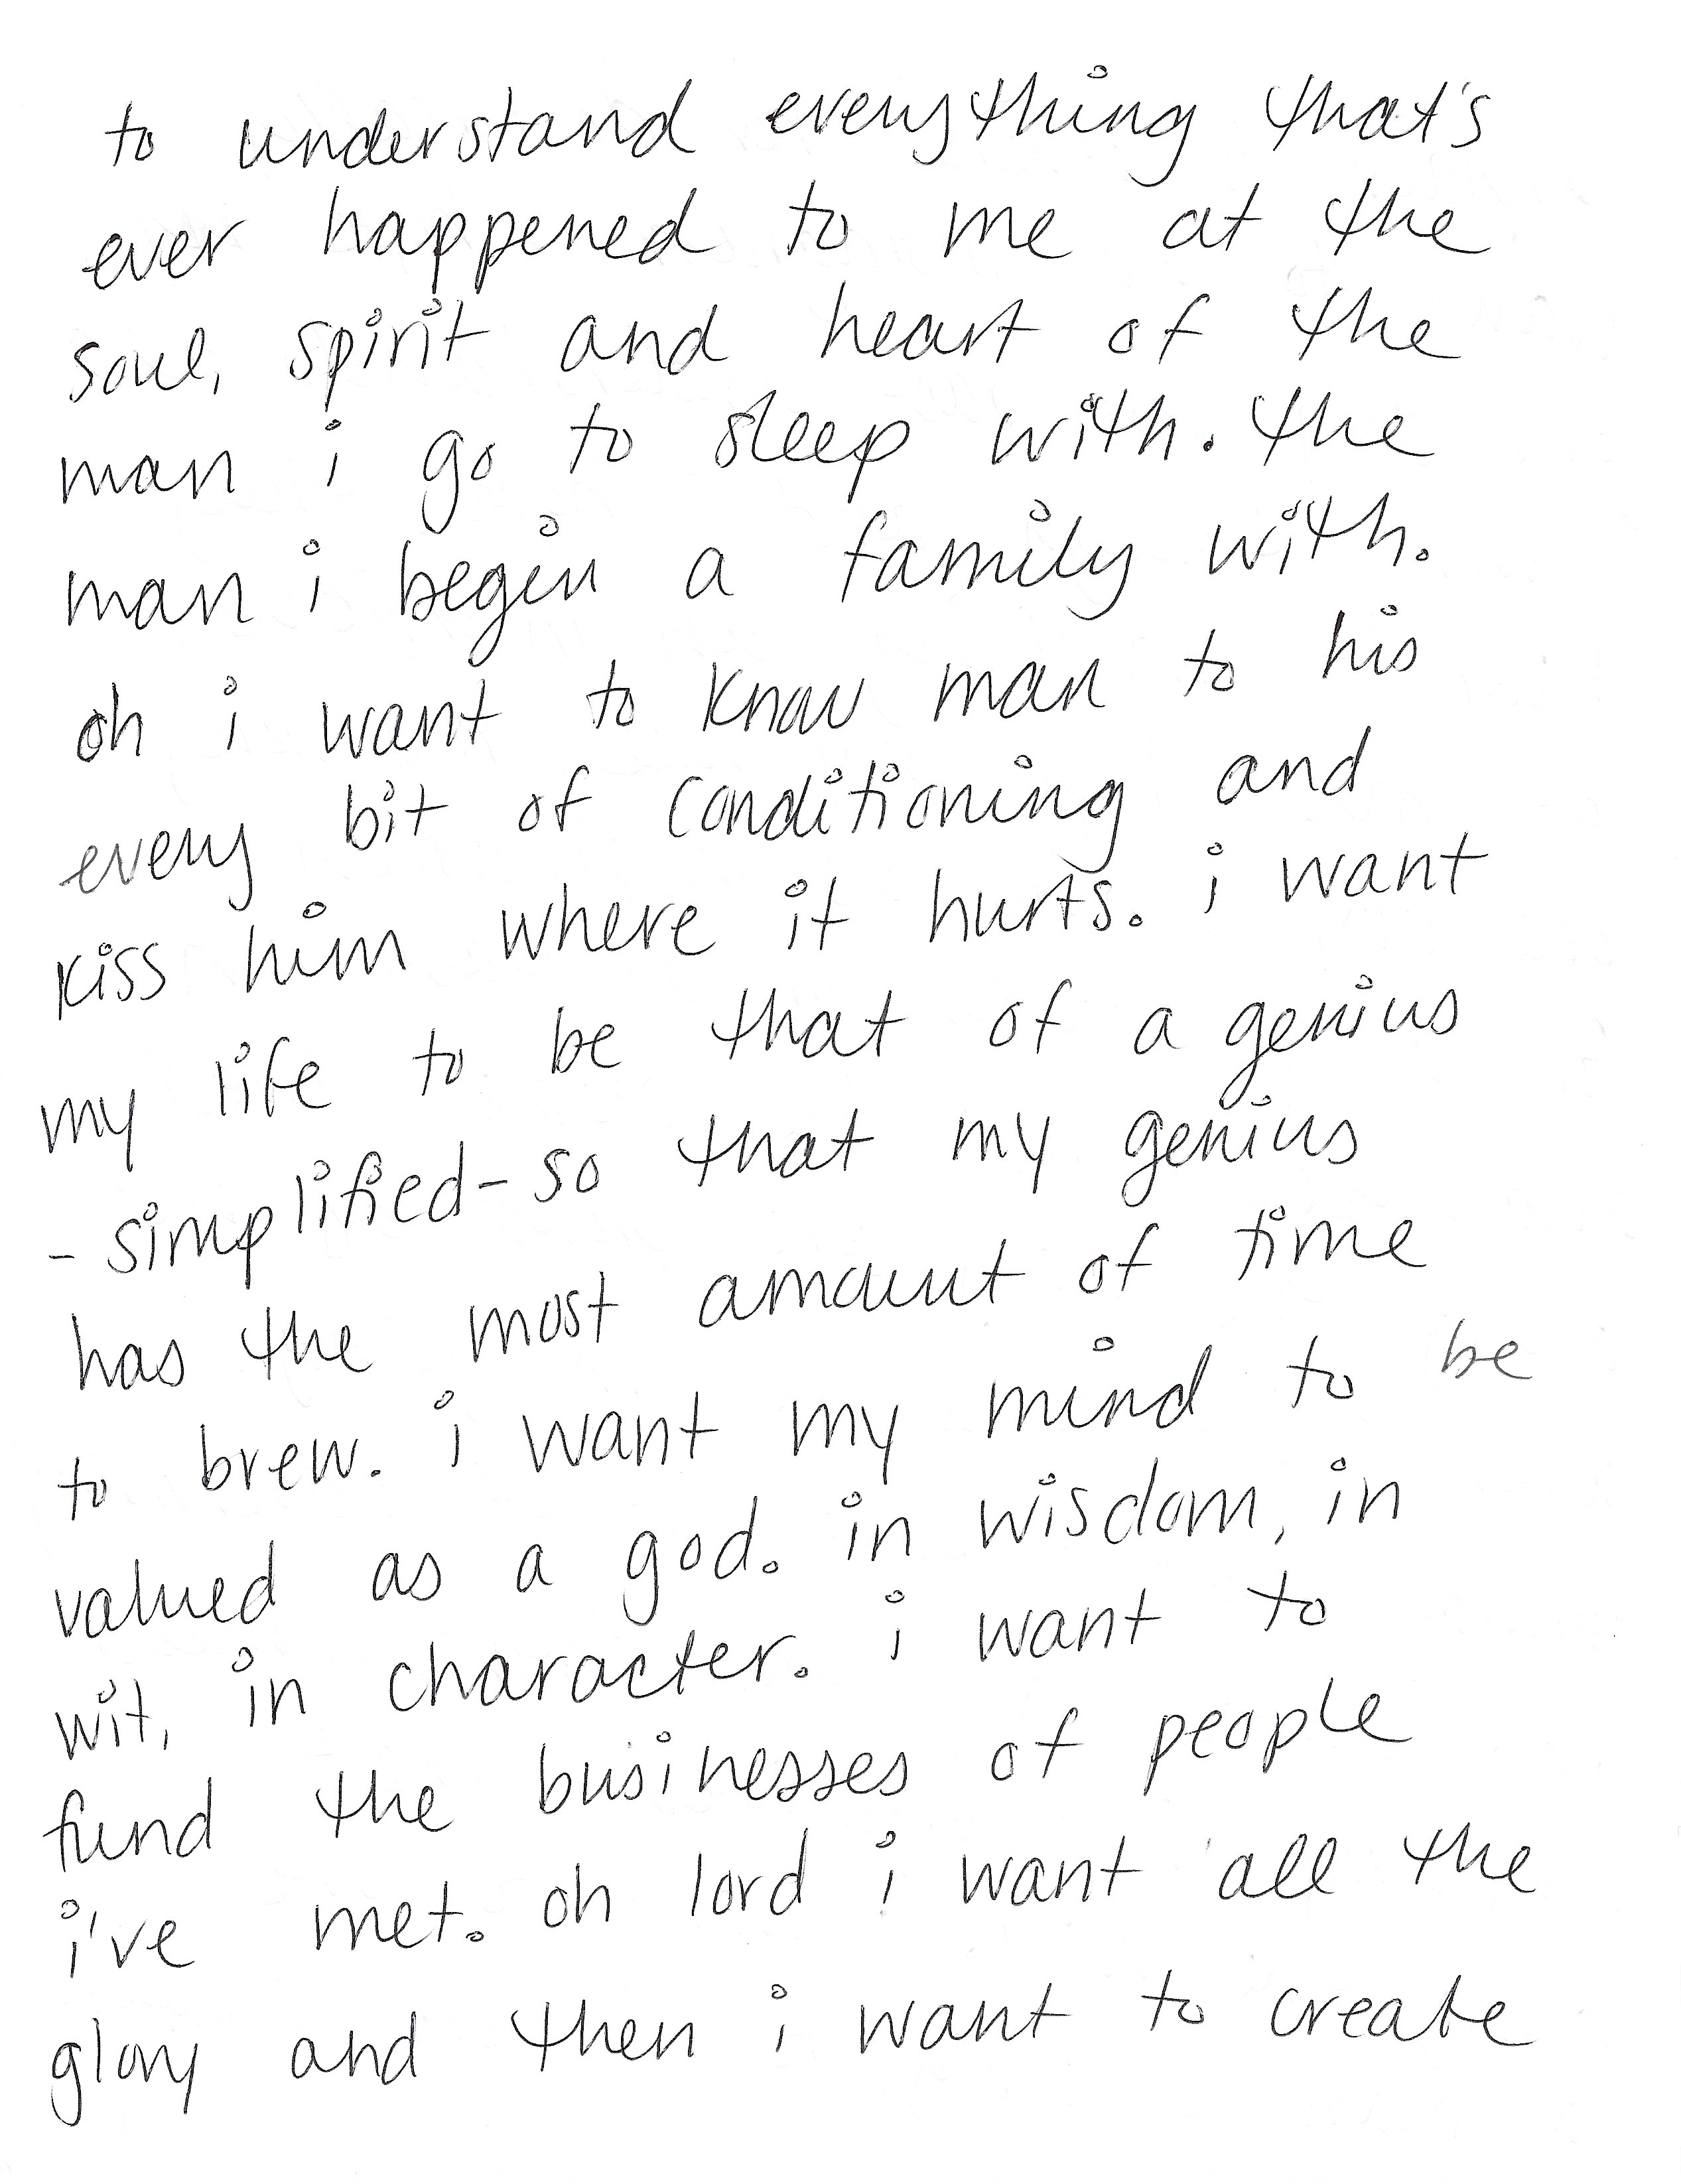 to understand everything that's
ever happened to me at the
soul, spirit and heart of the
man i go to sleep with. the
man i begin a family with.
oh i want to know man to his
every bit of conditioning and
kiss him where it hurts. i want
my life to be that of a genius
- simplified - so that my genius
has the most amount of time
to brew. i want my mind to be
valued as a god. in wisdom, in
wit, in character. i want to
fund the businesses of people
i've met. oh lord i want all the
glory and then i want to create